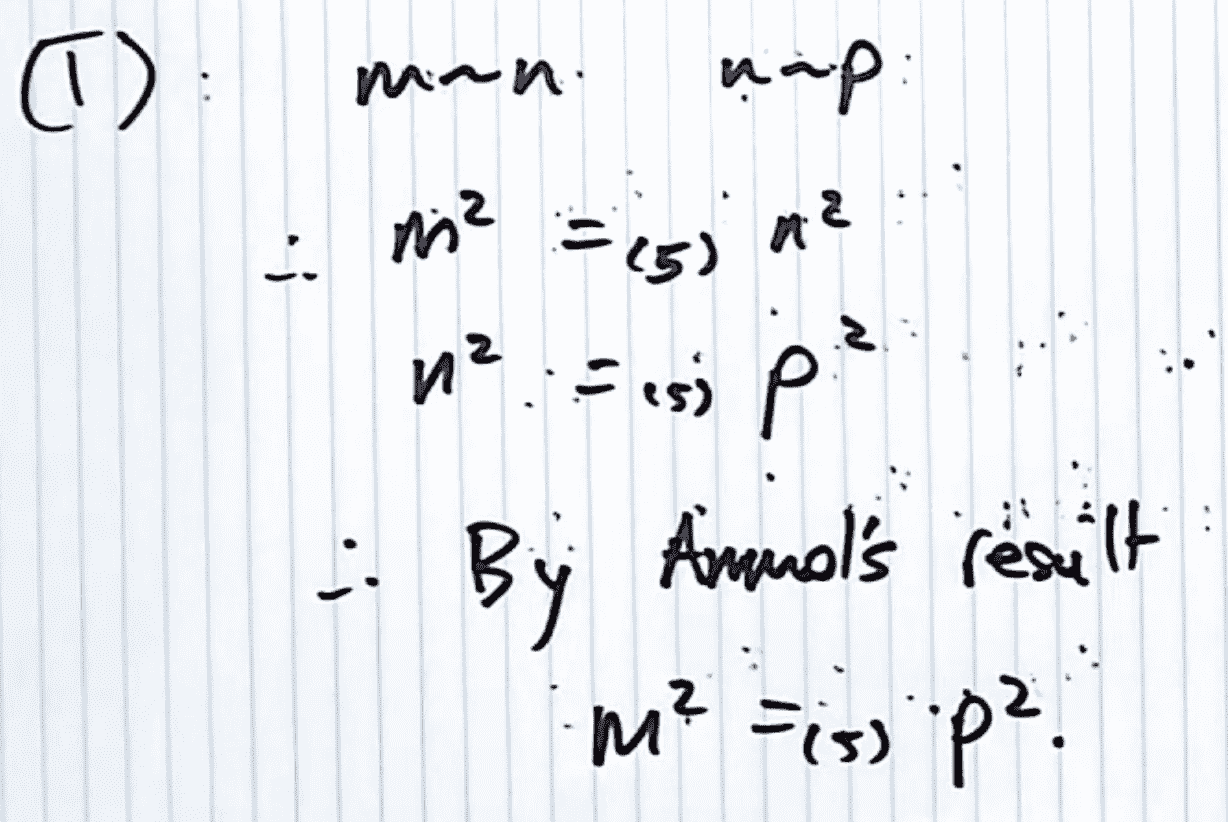 (1): m~n. n~p.
∴ m² =₍₅₎ n²
n² =₍₅₎ p²
∴ By Anmol's result
m² =₍₅₎ p².